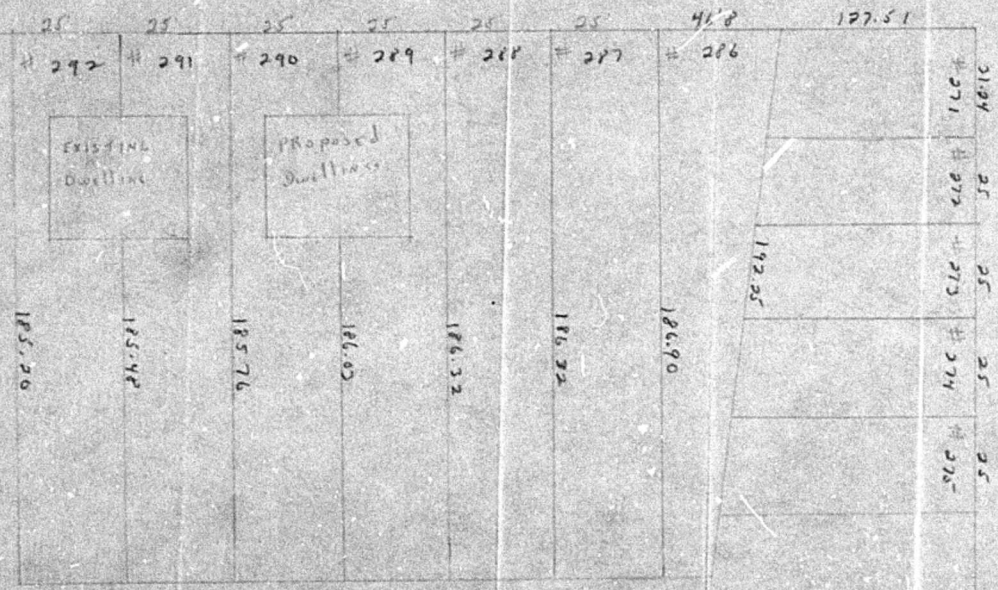 25' 25' 25' 25' 25' 25' 41'8 127.51
# 292 # 291 # 290 # 289 # 288 # 287 # 286
EXISTING
Dwelling
PRoposed
Dwellings
185.20 185.48 185.76 186.03 186.32 186.32 186.90 192.25
# 271 31.84
# 272 25
# 273 25
# 274 25
# 275 25